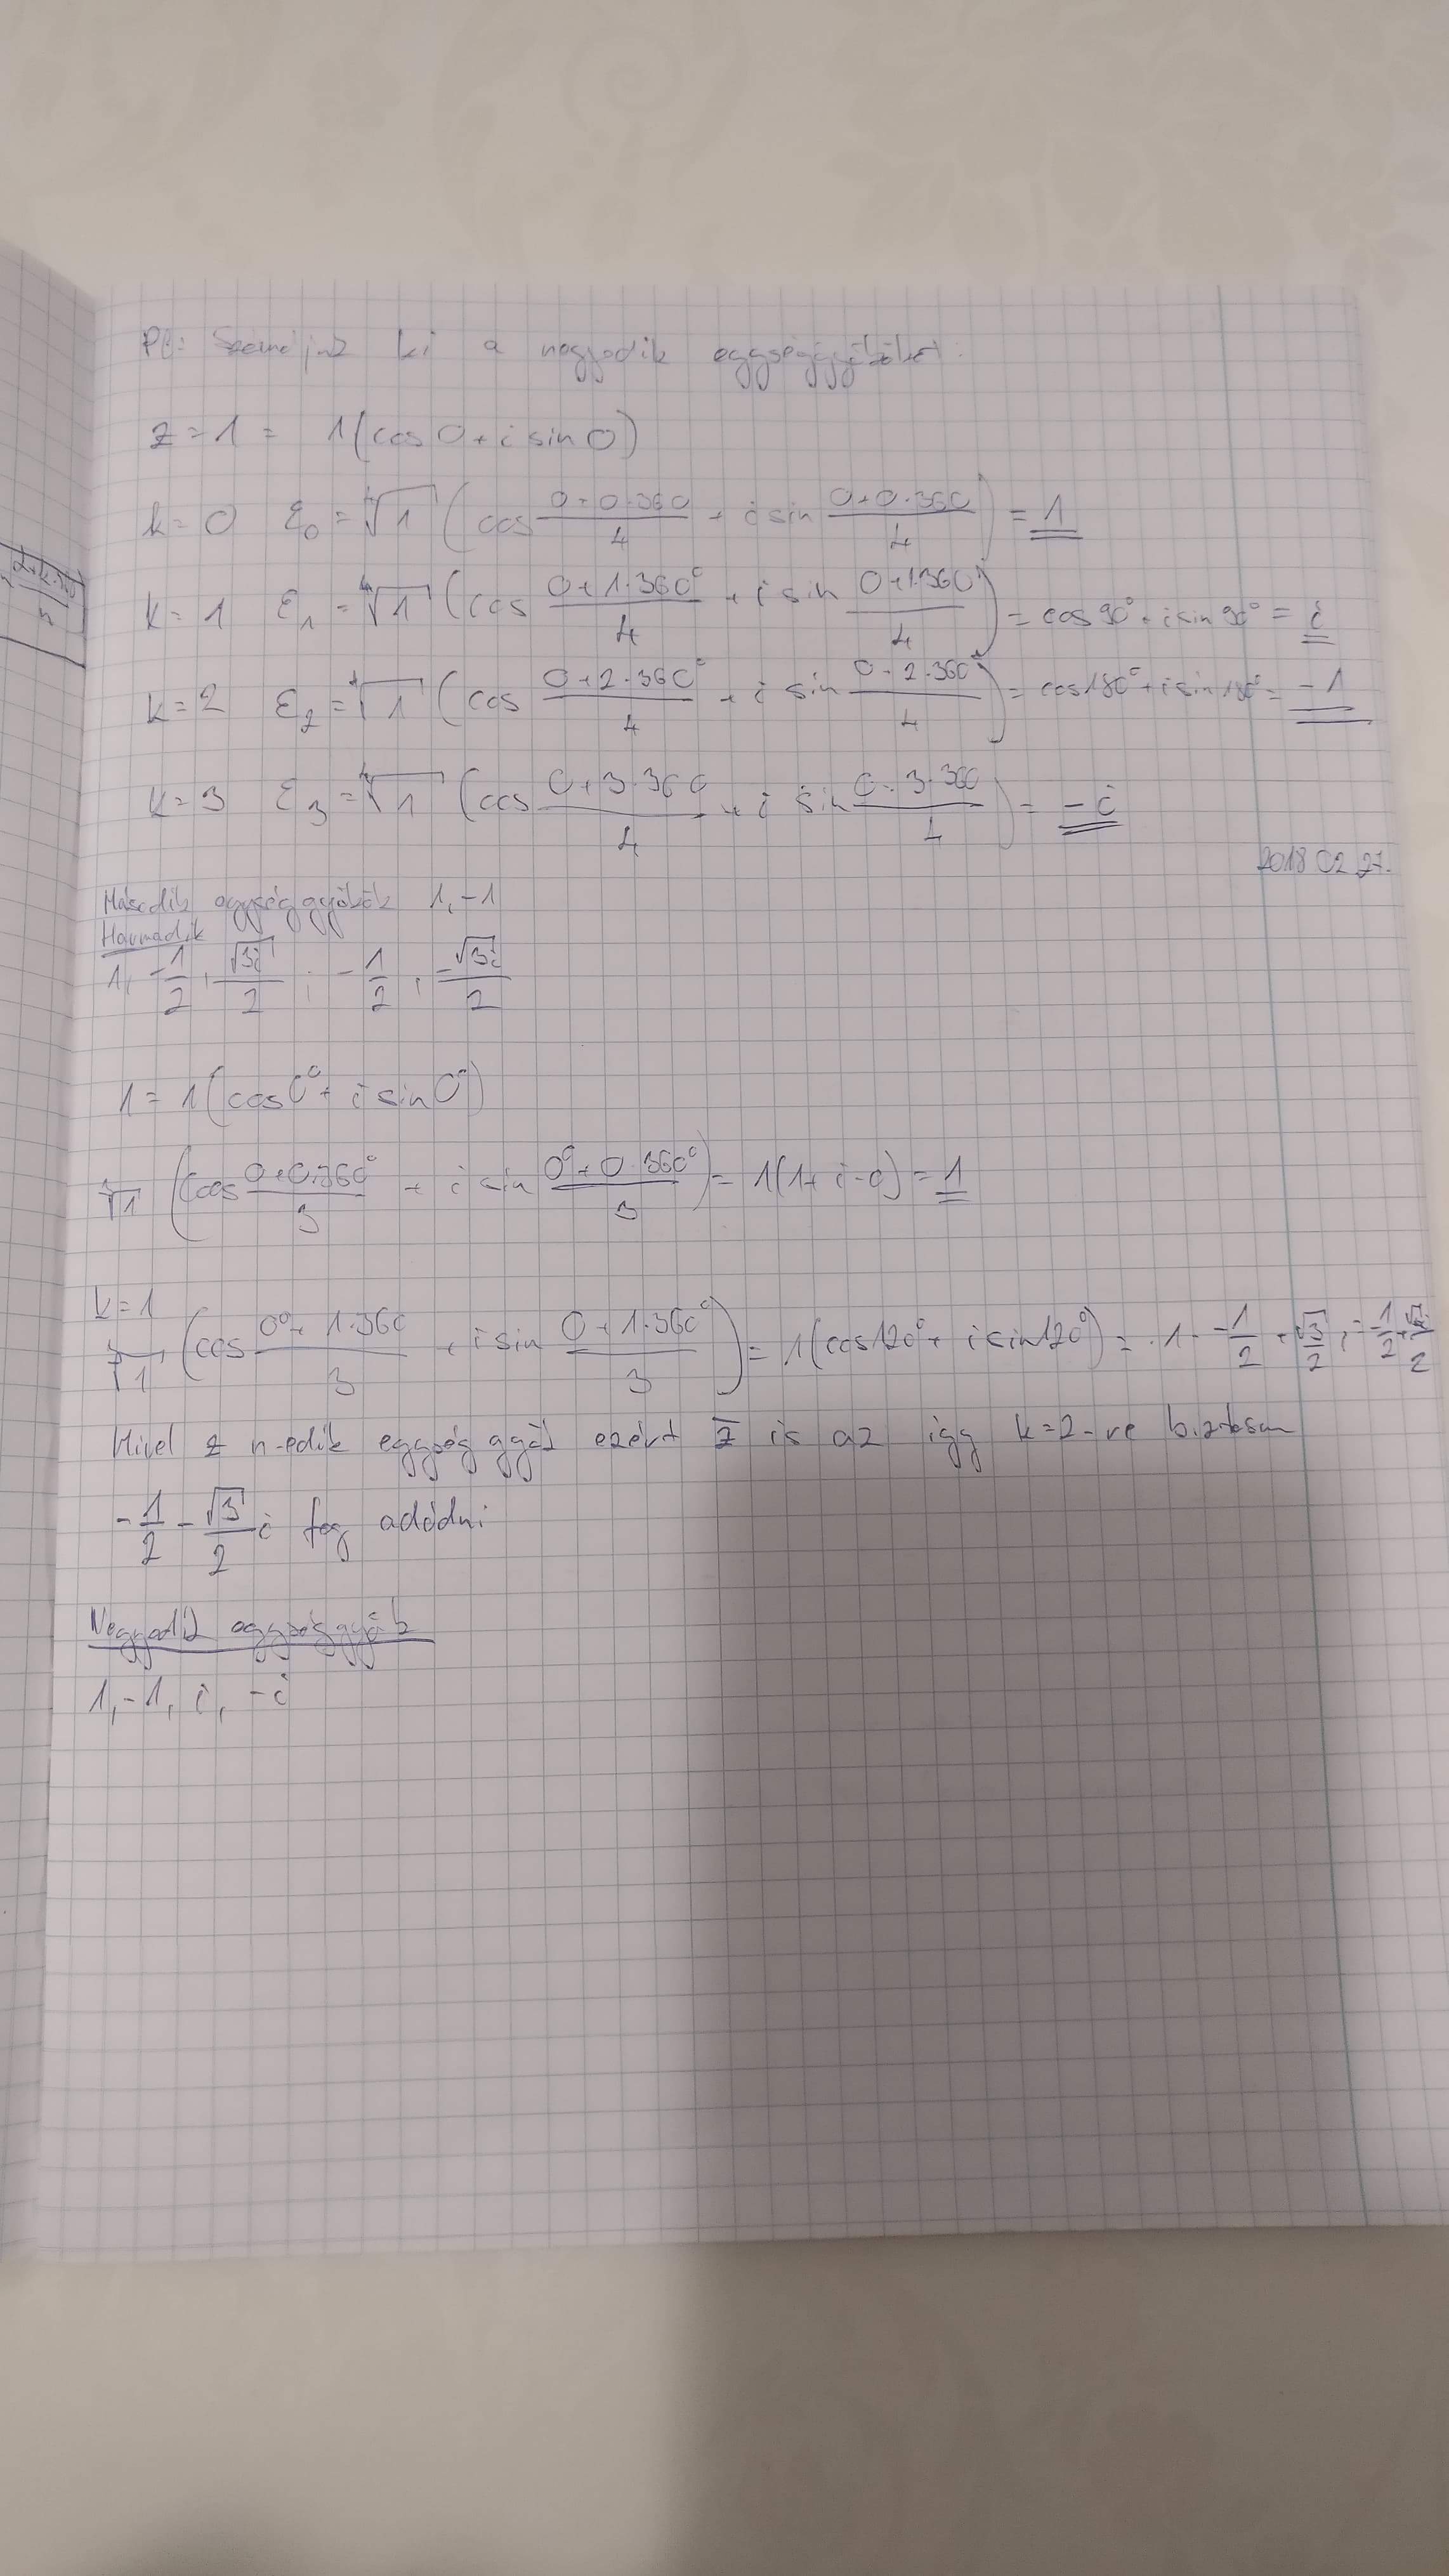 Pl: Számoljuk ki a negyedik egységgyököket:
z = 1 = 1(cos 0 + i sin 0)
k = 0 ε₀ = ⁴√1 (cos (0+0·360)/4 + i sin (0+0·360)/4) = 1
k = 1 ε₁ = ⁴√1 (cos (0+1·360°)/4 + i sin (0+1·360)/4) = cos 90° + i sin 90° = i
k = 2 ε₂ = ⁴√1 (cos (0+2·360°)/4 + i sin (0+2·360°)/4) = cos 180° + i sin 180° = -1
k = 3 ε₃ = ⁴√1 (cos (0+3·360)/4 + i sin (0+3·360)/4) = -i
2018 02 27.
Második egységgyökök 1, -1
Harmadik
1, -1/2 + √3i/2 ; -1/2 + -√3i/2
1 = 1(cos 0° + i sin 0°)
³√1 (cos (0+0·360°)/3 + i sin (0°+0·360°)/3) = 1(1+i·0) = 1
k=1
³√1 (cos (0°+1·360)/3 + i sin (0+1·360°)/3) = 1(cos 120° + i sin 120°) = 1· -1/2 + √3/2 i = -1/2 + √3i/2
Mivel z n-edik egység gyök ezért z̄ is az így k=2-re biztosan
-1/2 - √3/2 i fog adódni
Negyedik egységgyök
1, -1, i, -i